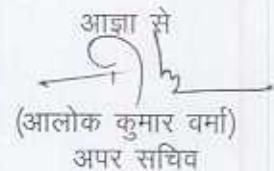 आज्ञा से
(आलोक कुमार वर्मा)
अपर सचिव